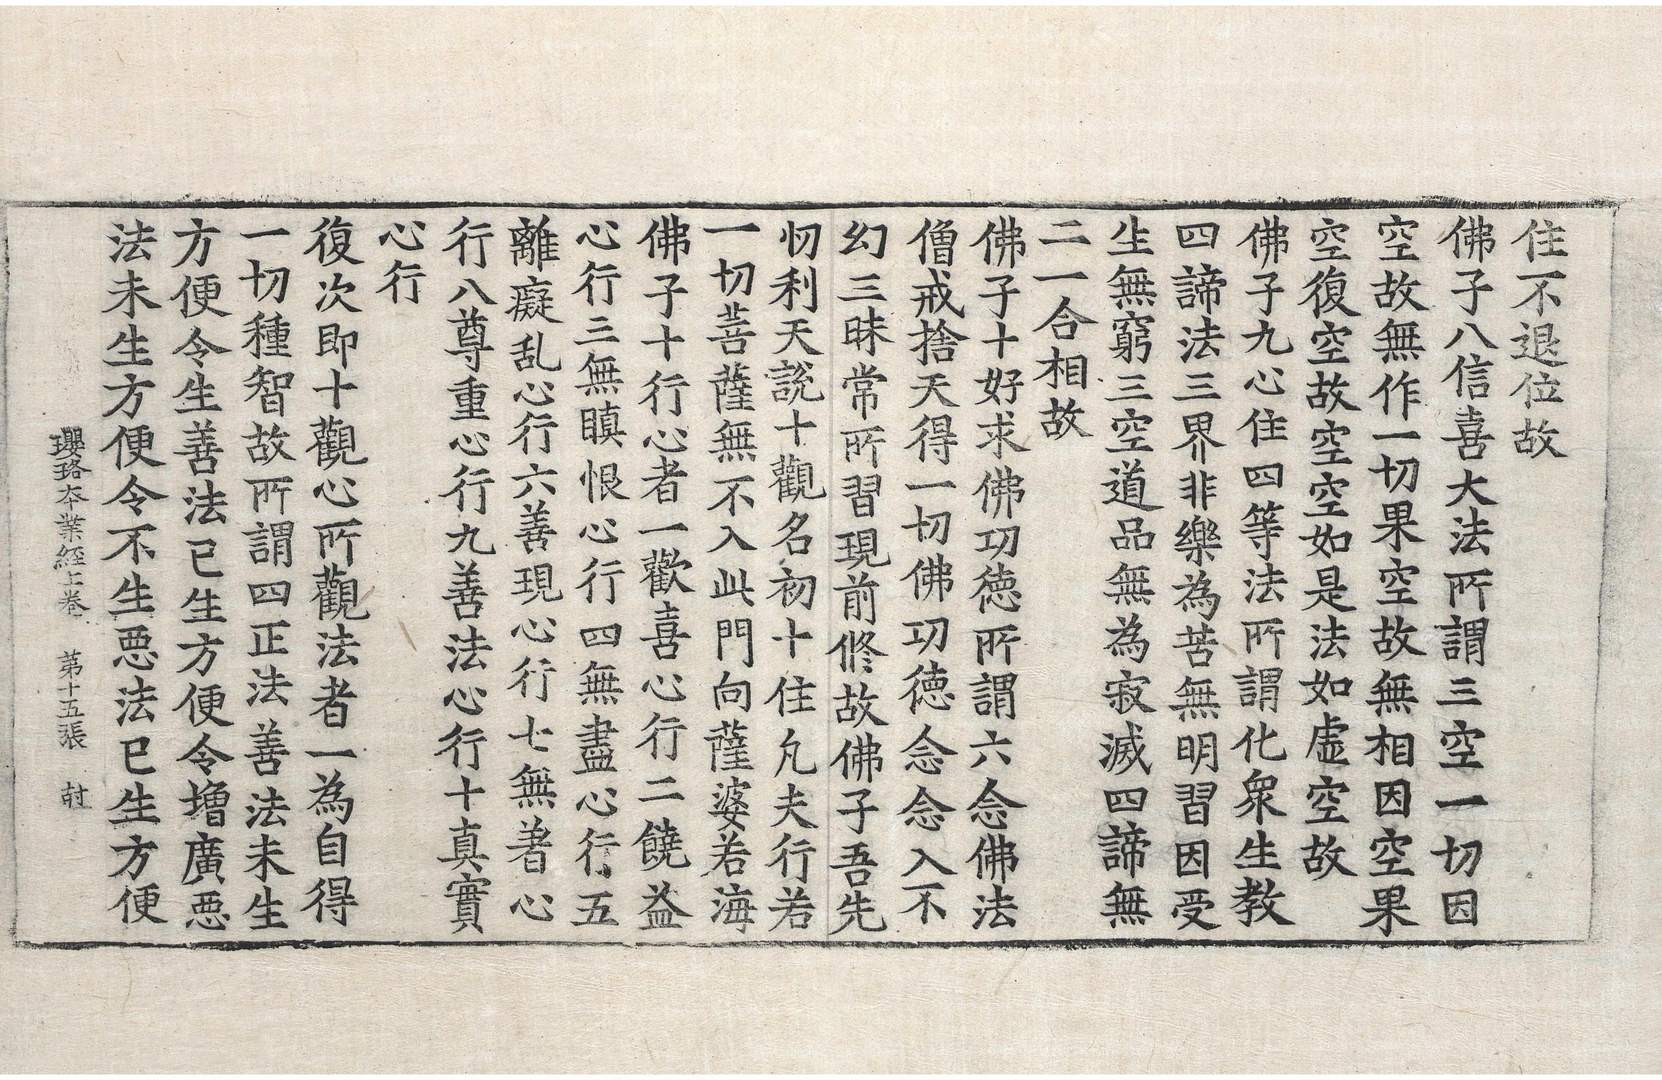 住不退位故
佛子八信喜大法所謂三空一切因
空故無作一切果空故無相因空果
空復空故空空如是法如虛空故
佛子九心住四等法所謂化衆生教
四諦法三界非樂為苦無明習因受
生無窮三空道品無為寂滅四諦無
二一合相故
佛子十好求佛功德所謂六念佛法
僧戒捨天得一切佛功德念念入不
幻三昧常所習現前修故佛子吾先
忉利天說十觀名初十住凡夫行若
一切菩薩無不入此門向薩婆若海
佛子十行心者一歡喜心行二饒益
心行三無瞋恨心行四無盡心行五
離癡乱心行六善現心行七無著心
行八尊重心行九善法心行十真實
心行
復次即十觀心所觀法者一為自得
一切種智故所謂四正法善法未生
方便令生善法已生方便令增廣惡
法未生方便令不生惡法已生方便
瓔珞本業經上卷 第十五張 尌